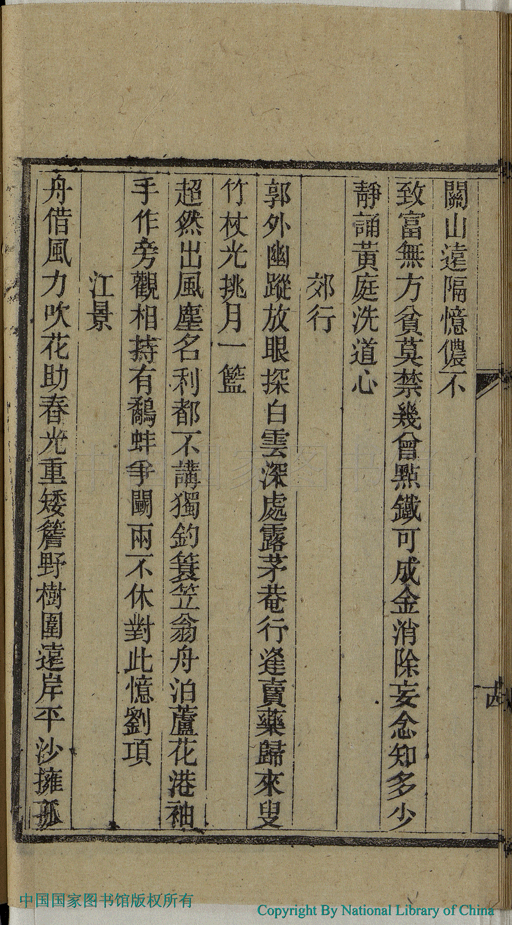 關山遠隔憶儂不
致富無方貧莫禁幾曾點鐵可成金消除妄念知多少
靜誦黃庭洗道心
郊行
郭外幽蹤放眼探白雲深處露茅菴行逢賣藥歸來叟
竹杖光挑月一籃
超然出風塵名利都不講獨釣簑笠翁舟泊蘆花港袖
手作旁觀相持有鷸蚌爭鬬兩不休對此憶劉項
江景
舟借風力吹花助春光重矮簷野樹圍遠岸平沙擁孤
中国国家图书馆版权所有
Copyright By National Library of China